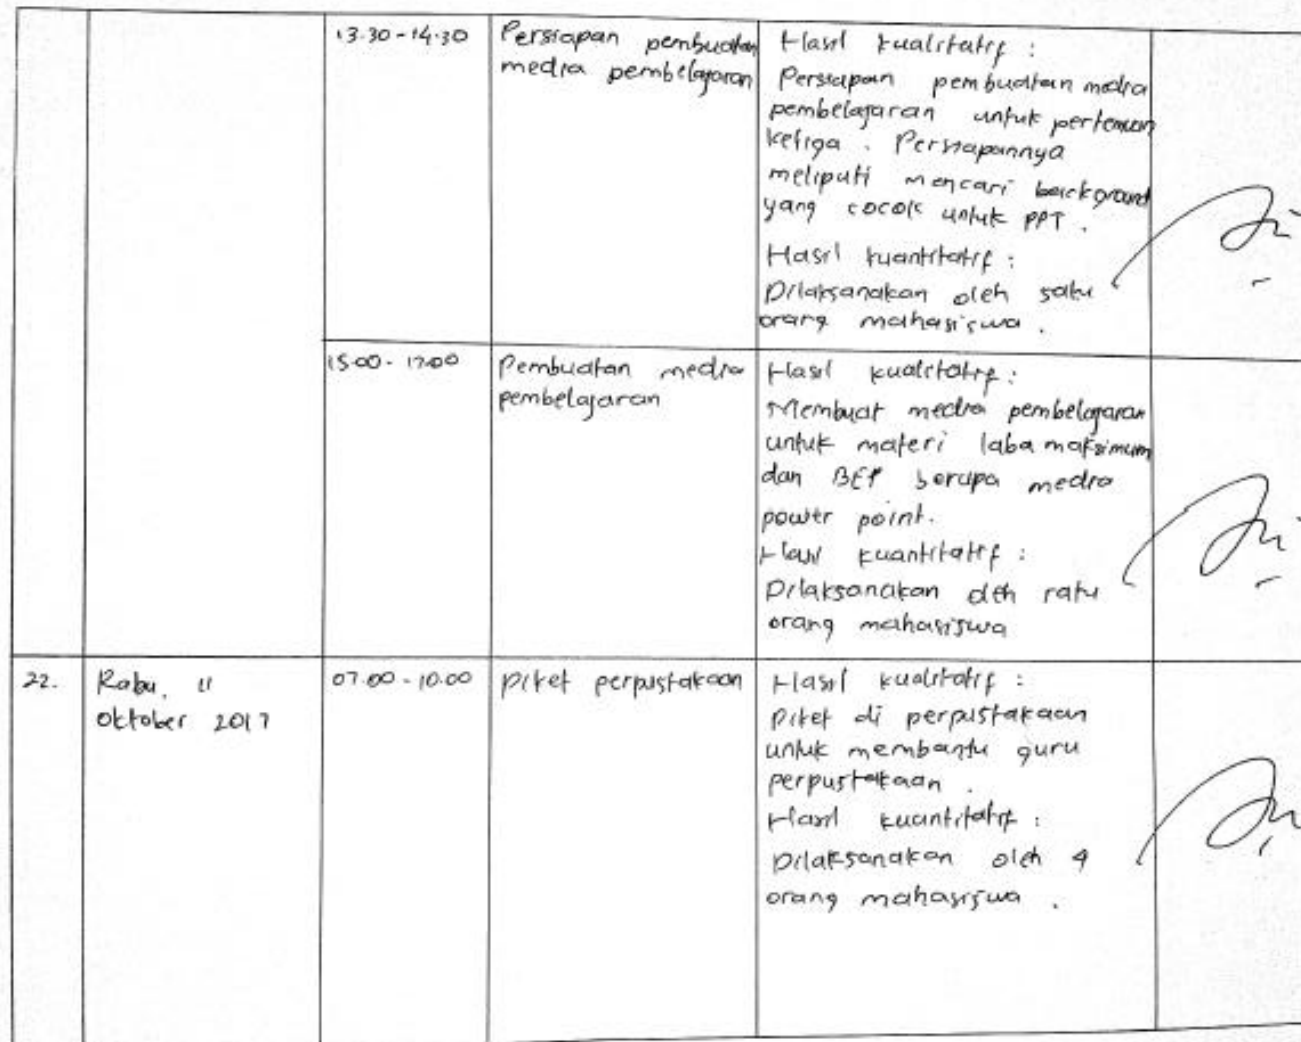 13.30 - 14.30
Persiapan pembuatan
media pembelajaran
Hasil kualitatif :
Persiapan pembuatan media
pembelajaran untuk pertemuan
ketiga . Persiapannya
meliputi mencari background
yang cocok untuk PPT .
Hasil kuantitatif :
Dilaksanakan oleh satu
orang mahasiswa .
15.00 - 17.00
Pembuatan media
pembelajaran
Hasil kualitatif :
Membuat media pembelajaran
untuk materi laba maksimum
dan BEP berupa media
power point.
Hasil kuantitatif :
Dilaksanakan oleh satu
orang mahasiswa
22.
Rabu, 11
Oktober 2017
07.00 - 10.00
Piket perpustakaan
Hasil kualitatif :
Piket di perpustakaan
untuk membantu guru
perpustakaan .
Hasil kuantitatif :
Dilaksanakan oleh 4
orang mahasiswa .